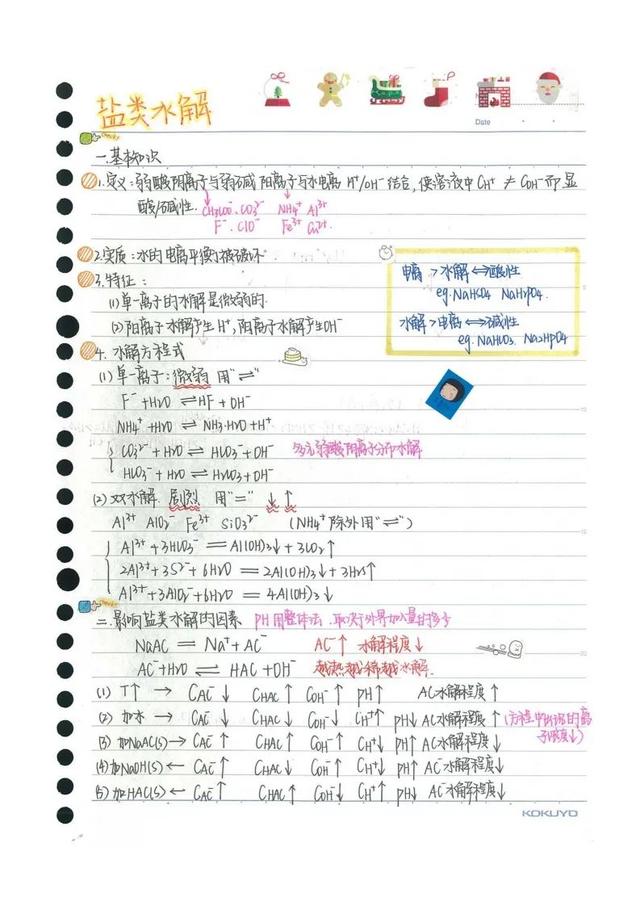 盐类水解
Date
一.基本知识
1.定义:弱酸阴离子与弱碱阳离子与水电离H⁺/OH⁻结合,使溶液中CH⁺≠COH⁻而显
酸/碱性.
CH₃COO⁻ CO₃²⁻ NH₄⁺ Al³⁺
F⁻ ClO⁻ Fe³⁺ Cu²⁺
2.实质:水的电离平衡被破坏
3.特征:
(1)单一离子的水解是微弱的.
(2)阳离子水解产生H⁺,阴离子水解产生OH⁻
电离>水解⇔酸性
eg.NaHSO₃ NaH₂PO₄.
水解>电离⇔碱性
eg.NaHCO₃. Na₂HPO₄
4.水解方程式
(1)单一离子:微弱 用"⇌"
F⁻+H₂O⇌HF+OH⁻
NH₄⁺+H₂O⇌NH₃·H₂O+H⁺
CO₃²⁻+H₂O⇌HCO₃⁻+OH⁻ 多元弱酸阴离子分布水解
HCO₃⁻+H₂O⇌H₂CO₃+OH⁻
(2)双水解 剧烈 用"=" ↓↑
Al³⁺ AlO₂⁻ Fe³⁺ SiO₃²⁻ (NH₄⁺除外用"⇌")
Al³⁺+3HCO₃⁻=Al(OH)₃↓+3CO₂↑
2Al³⁺+3S²⁻+6H₂O=2Al(OH)₃↓+3H₂S↑
Al³⁺+3AlO₂⁻+6H₂O=4Al(OH)₃↓
二.影响盐类水解的因素 PH用整体法,取决于外界加入量的多少
NaAC=Na⁺+AC⁻ AC⁻↑ 水解程度↓
AC⁻+H₂O⇌HAC+OH⁻ 越热越稀越水解.
(1) T↑ → CAC⁻↓ CHAC↑ COH⁻↑ PH↑ AC⁻水解程度↑
(2) 加水 → CAC⁻↓ CHAC↓ COH⁻↓ CH⁺↑ PH↓ AC⁻水解程度↑(方程中所有的离子浓度↓)
(3) 加NaAC(S)→ CAC⁻↑ CHAC↑ COH⁻↑ CH⁺↓ PH↑ AC⁻水解程度↓
(4)加NaOH(S)← CAC⁻↑ CHAC↓ COH⁻↑ CH⁺↓ PH↑ AC⁻水解程度↓
(5)加HAC(S)← CAC⁻↑ CHAC↑ COH⁻↓ CH⁺↑ PH↓ AC⁻水解程度↓
KOKUYO